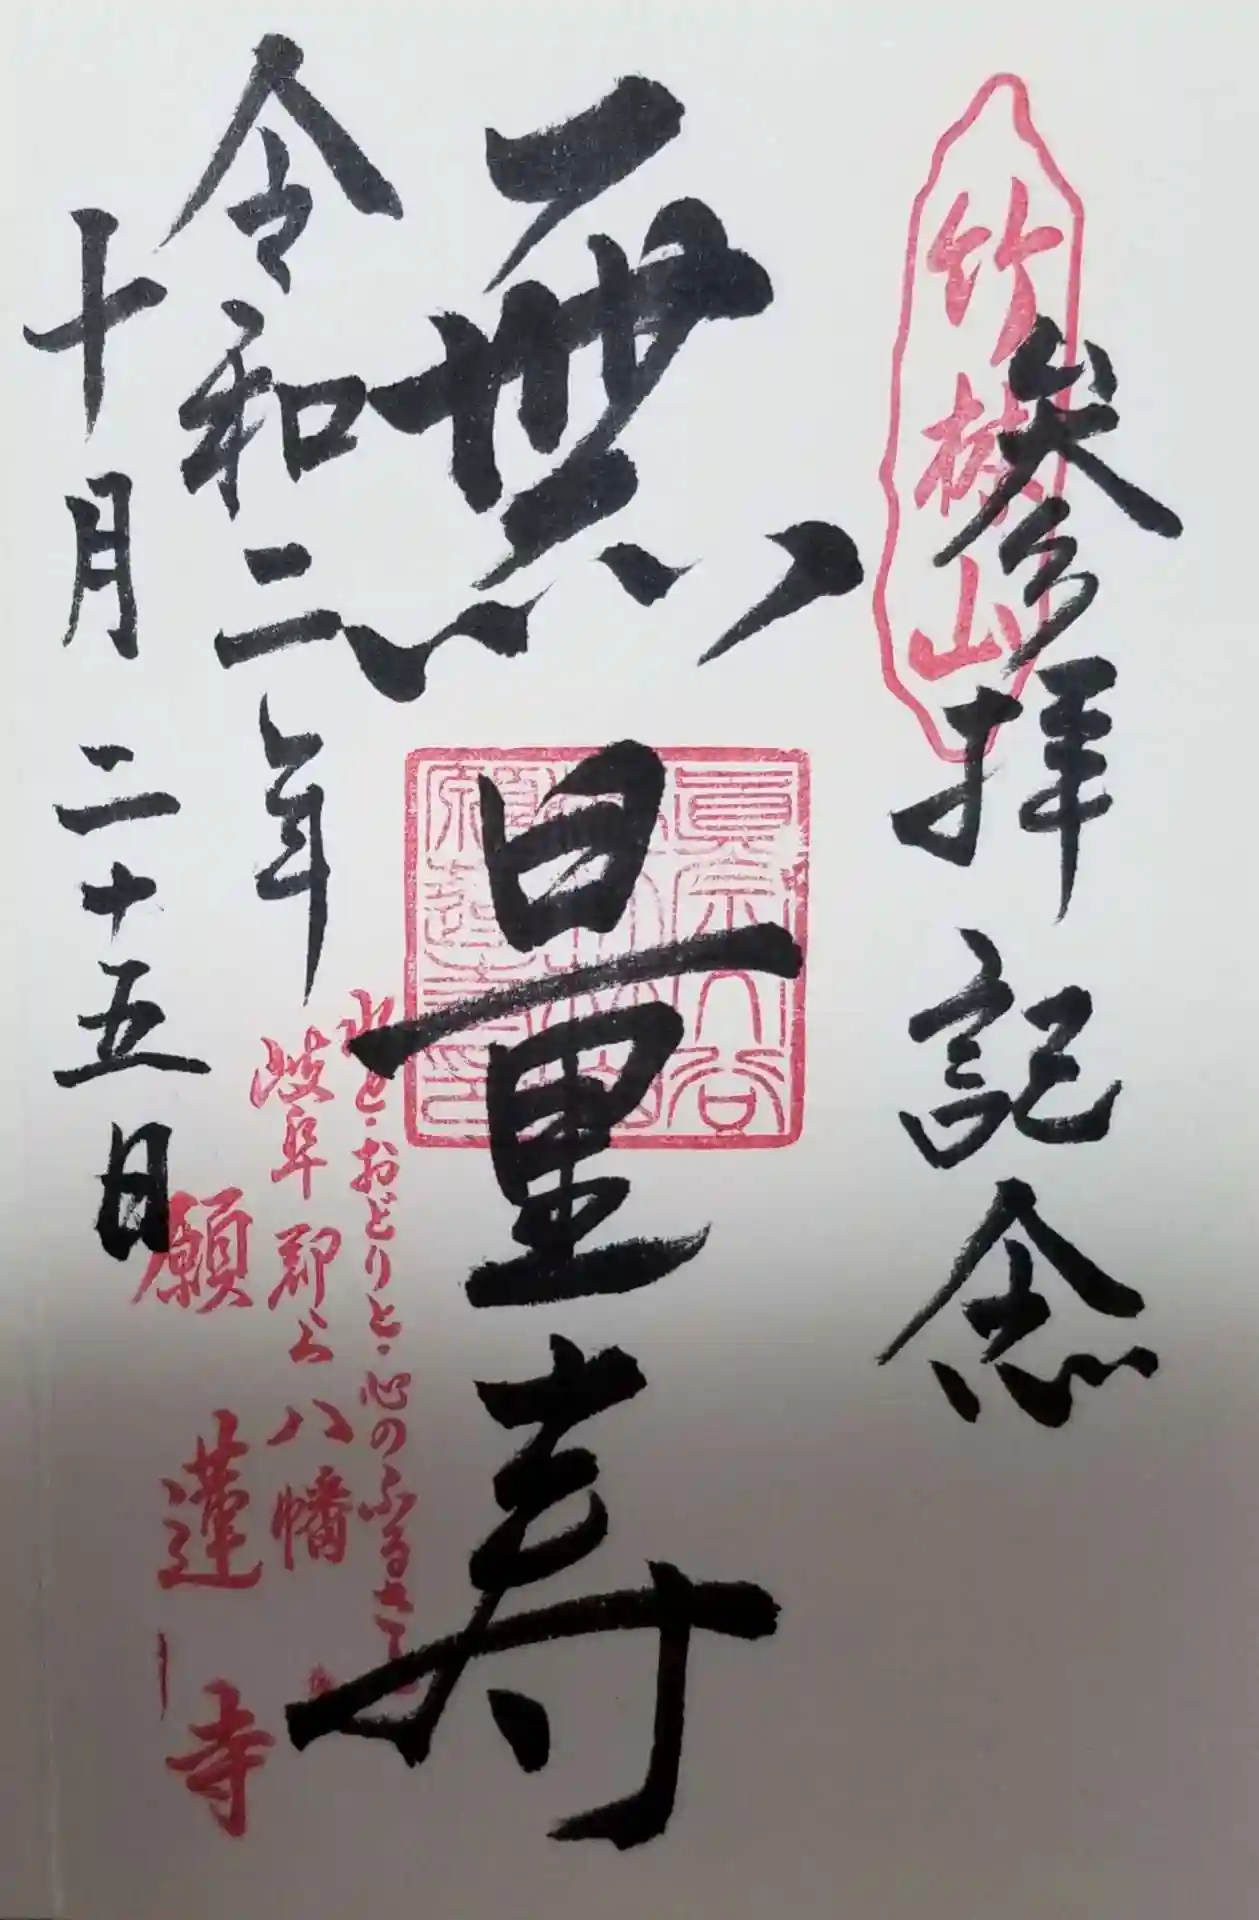 竹樹山
参拝記念
無量寿
令和二年
十月二十五日
水と・おどりと・心のふるさと
岐阜郡上八幡
願蓮寺